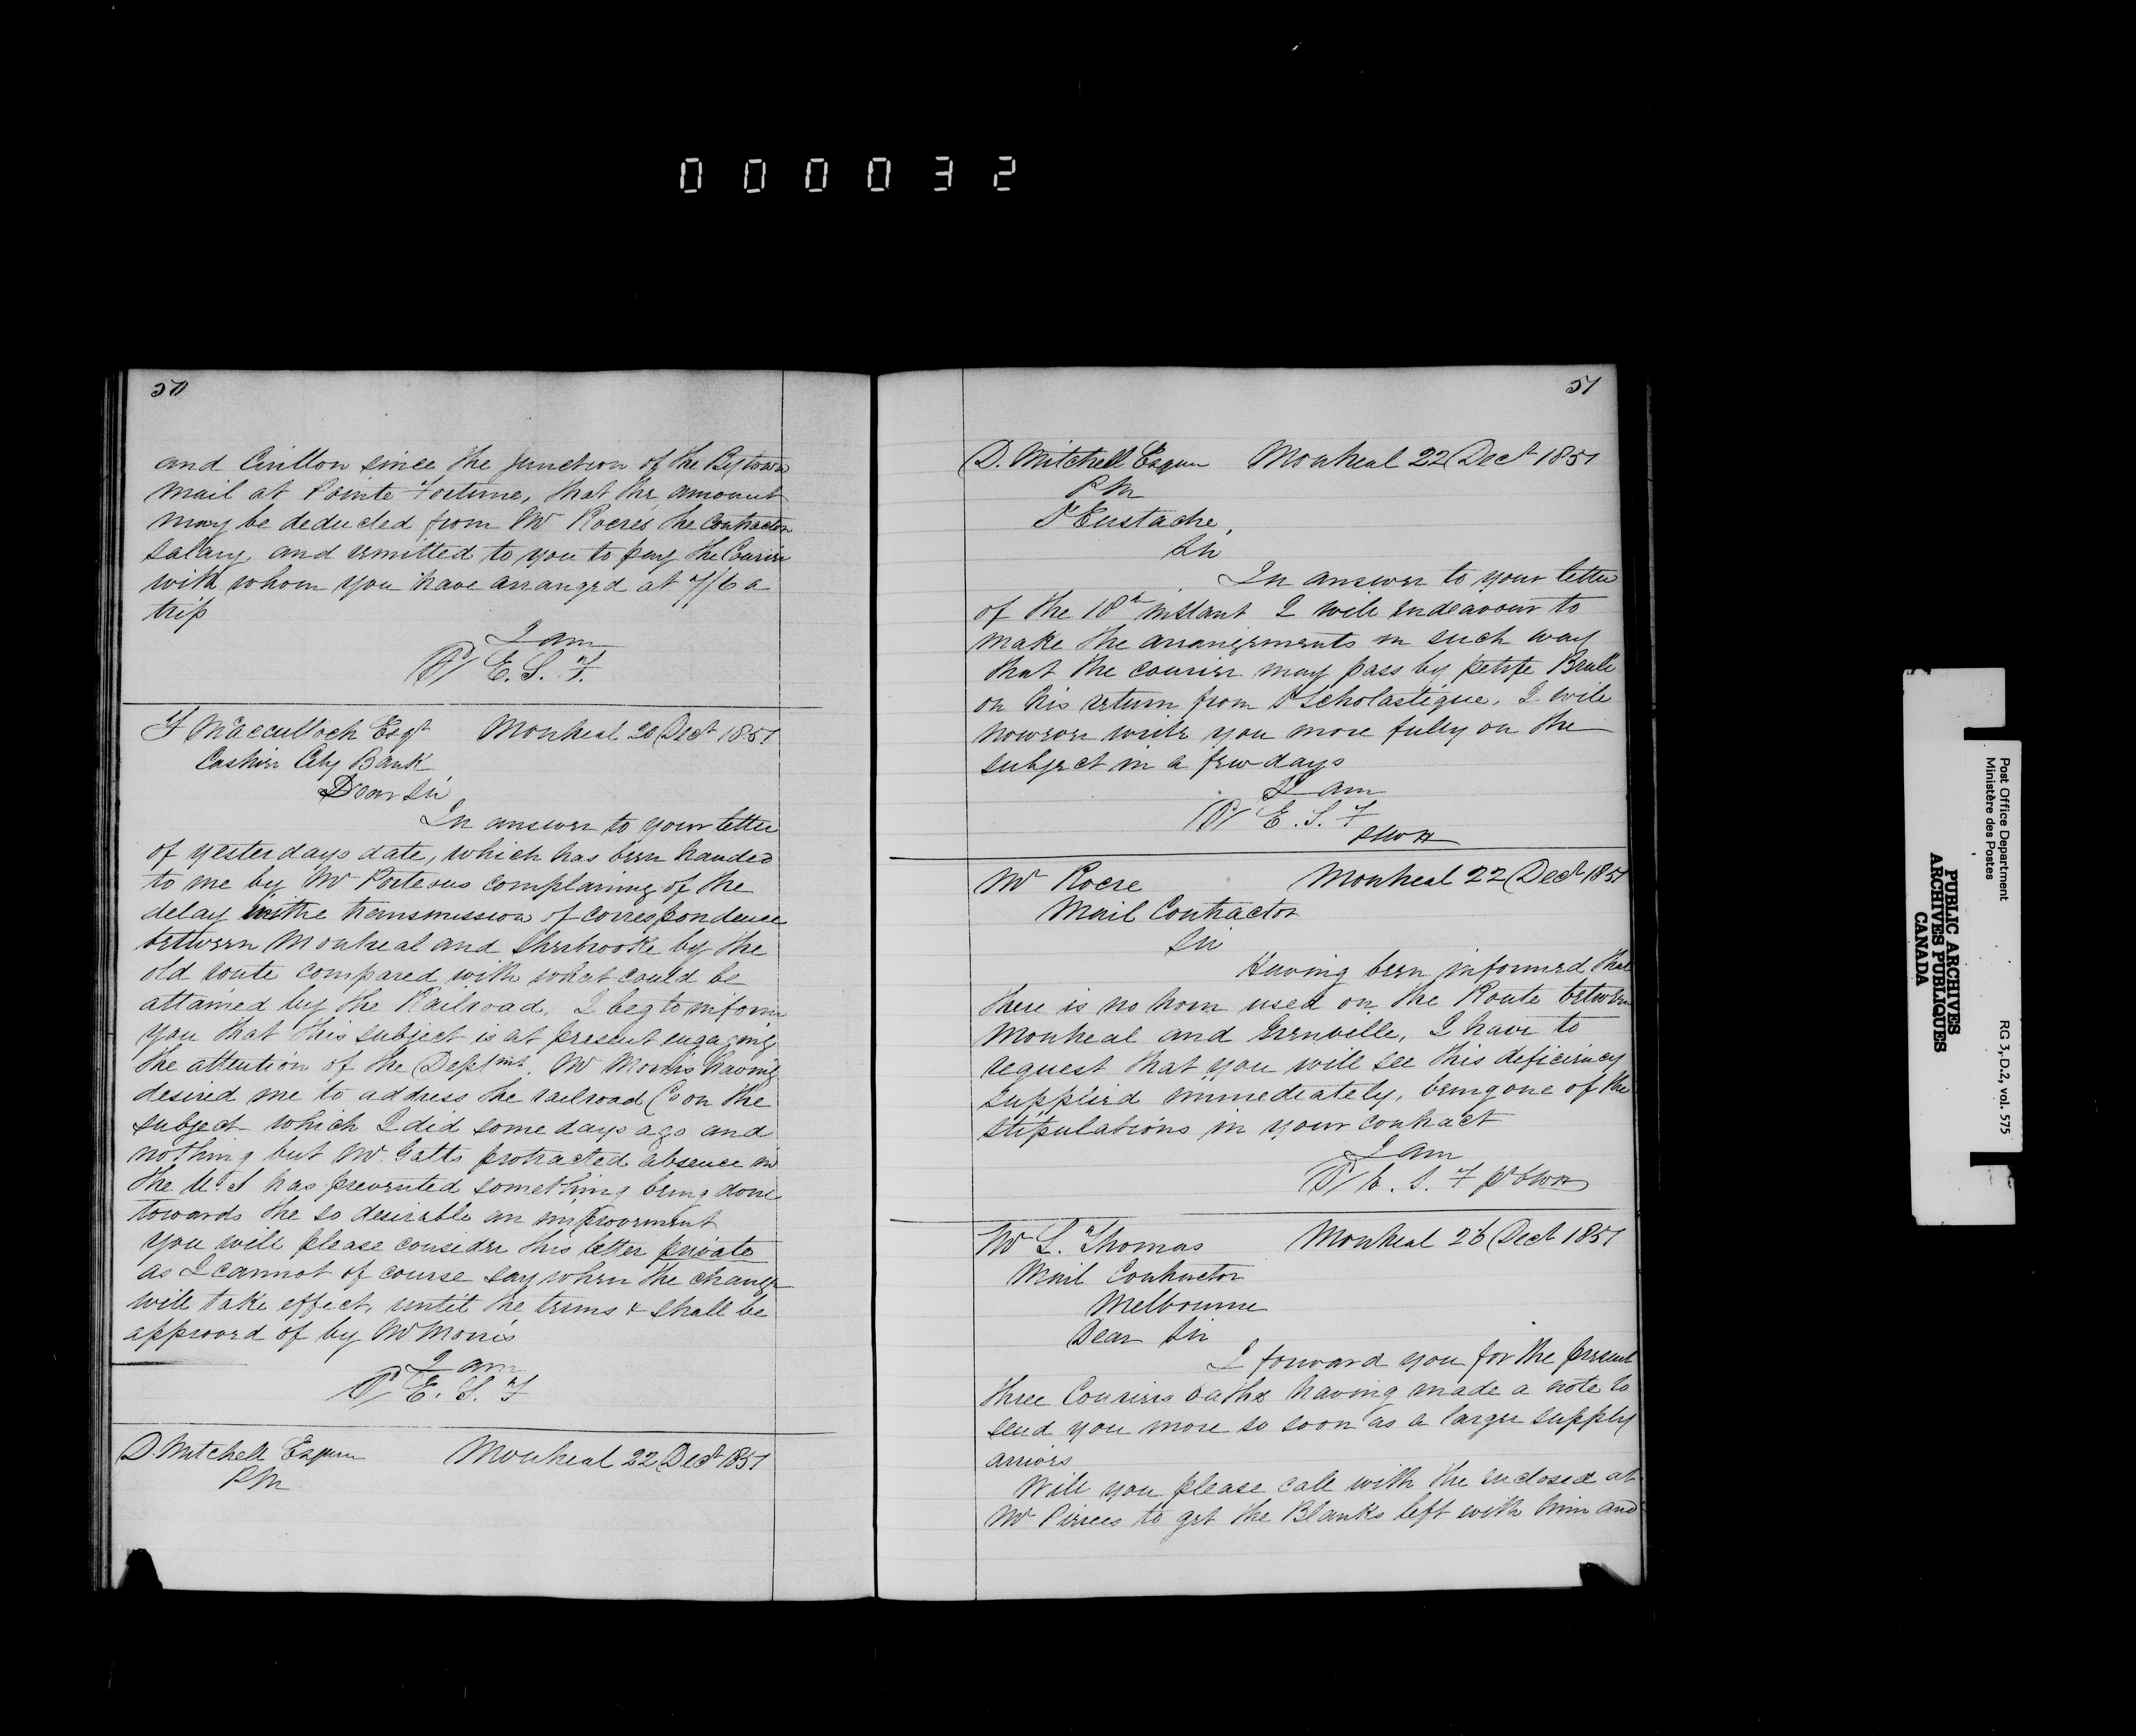 000032
50
and Carillon since the junction of the Bytown
mail at Pointe Fortune, that the amount
may be deducted from Mr Rocres the Contractor
salary, and remitted to you to pay the Courier
with whom you have arranged at 7/6 a
trip
I am
E. S. F.
F Macculloch Esqr Montreal 20 Decr 1851
Cashier City Bank
Dear Sir
In answer to your letter
of yesterdays date, which has been handed
to me by Mr Porteous complaining of the
delay in the transmission of correspondence
between Montreal and Sherbrooke by the
old route compared with what could be
attained by the Railroad, I beg to inform
you that this subject is at present engaging
the attention of the Deptmt. Mr Morris having
desired me to address the railroad Co on the
subject which I did some days ago and
nothing but Mr Galts protracted absence in
the U. S has prevented something being done
towards the so desirable an improvement
you will please consider this letter private
as I cannot of course say when the change
will take effect, until the terms & shall be
approved of by Mr Morris
I am
E. S. F
D. Mitchell Esqure Montreal 22 Decr 1851
P M
51
D. Mitchell Esqure Montreal 22 Decr 1851
P M
St Eustache,
Sir
In answer to your letter
of the 18th instant I will endeavour to
make the arrangements in such way
that the courier may pass by petite Brulé
on his return from St Scholastique, I will
however write you more fully on the
subject in a few days
I am
E. S. F
Mr Rocre Montreal 22 Decr 1851
Mail Contractor
Sir
Having been informed that
there is no horn used on the Route between
Montreal and Grenville, I have to
request that you will see this deficiency
supplied immediately, being one of the
stipulations in your contract
I am
E. S. F
Mr L. Thomas Montreal 26 Decr 1851
Mail Contractor
Melbourne
Dear Sir
I forward you for the present
three Couriers oaths having made a note to
send you more so soon as a larger supply
arrives
Will you please call with the enclosed at
Mr Pierces to get the Blanks left with him and
Post Office Department
Ministère des Postes
RG 3, D.2, vol. 575
PUBLIC ARCHIVES
ARCHIVES PUBLIQUES
CANADA